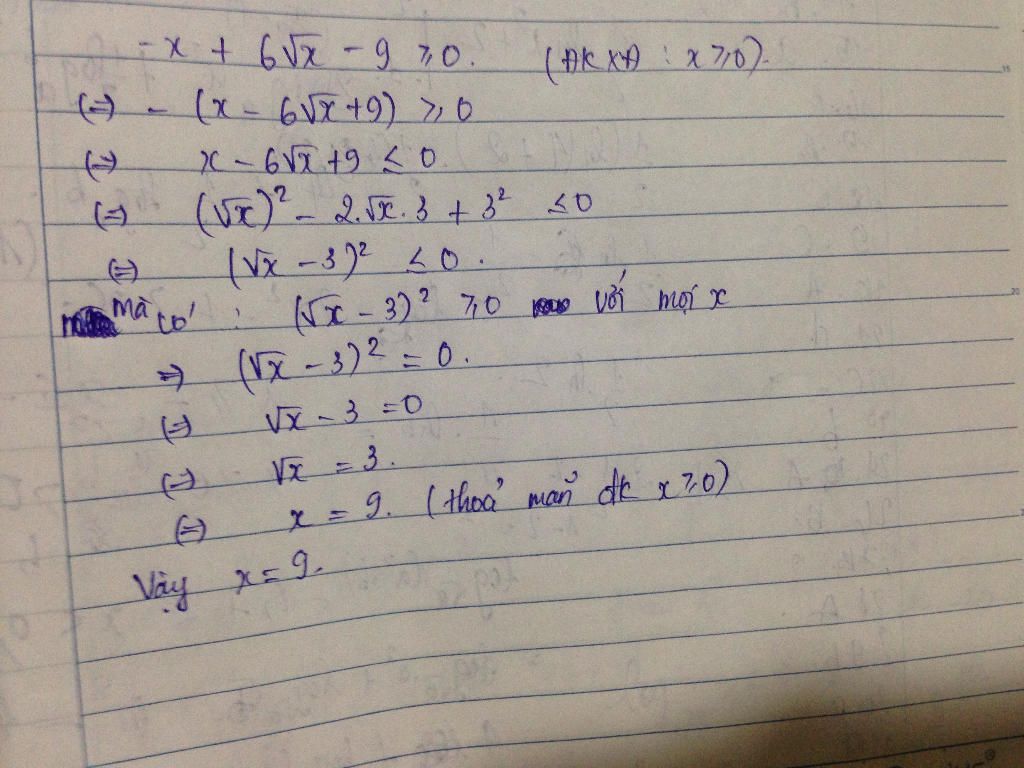 -x + 6√x - 9 ≥ 0. (ĐKXĐ : x ≥ 0).
(=) - (x - 6√x + 9) ≥ 0
(=) x - 6√x + 9 ≤ 0
(=) (√x)² - 2.√x.3 + 3² ≤ 0
(=) (√x - 3)² ≤ 0.
mà có : (√x - 3)² ≥ 0 với mọi x
=) (√x - 3)² = 0.
(=) √x - 3 = 0
(=) √x = 3.
(=) x = 9. (thoả mãn đk x ≥ 0)
Vậy x = 9.